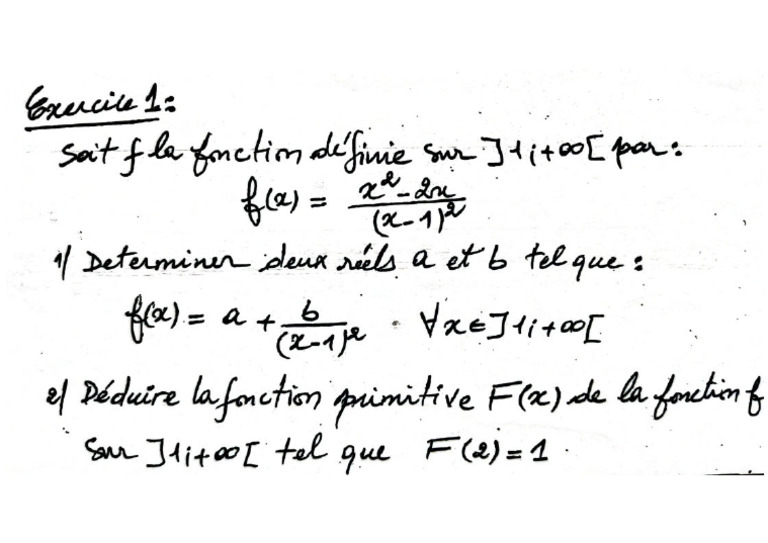 Exercice 1:
Soit f la fonction définie sur ]1;+∞[ par:
f(x) = (x² - 2x)/(x-1)²
1/ Determiner deux réels a et b tel que:
f(x) = a + b/(x-1)² . ∀x∈]1;+∞[
2/ Déduire la fonction primitive F(x) de la fonction f
sur ]1;+∞[ tel que F(2)=1.